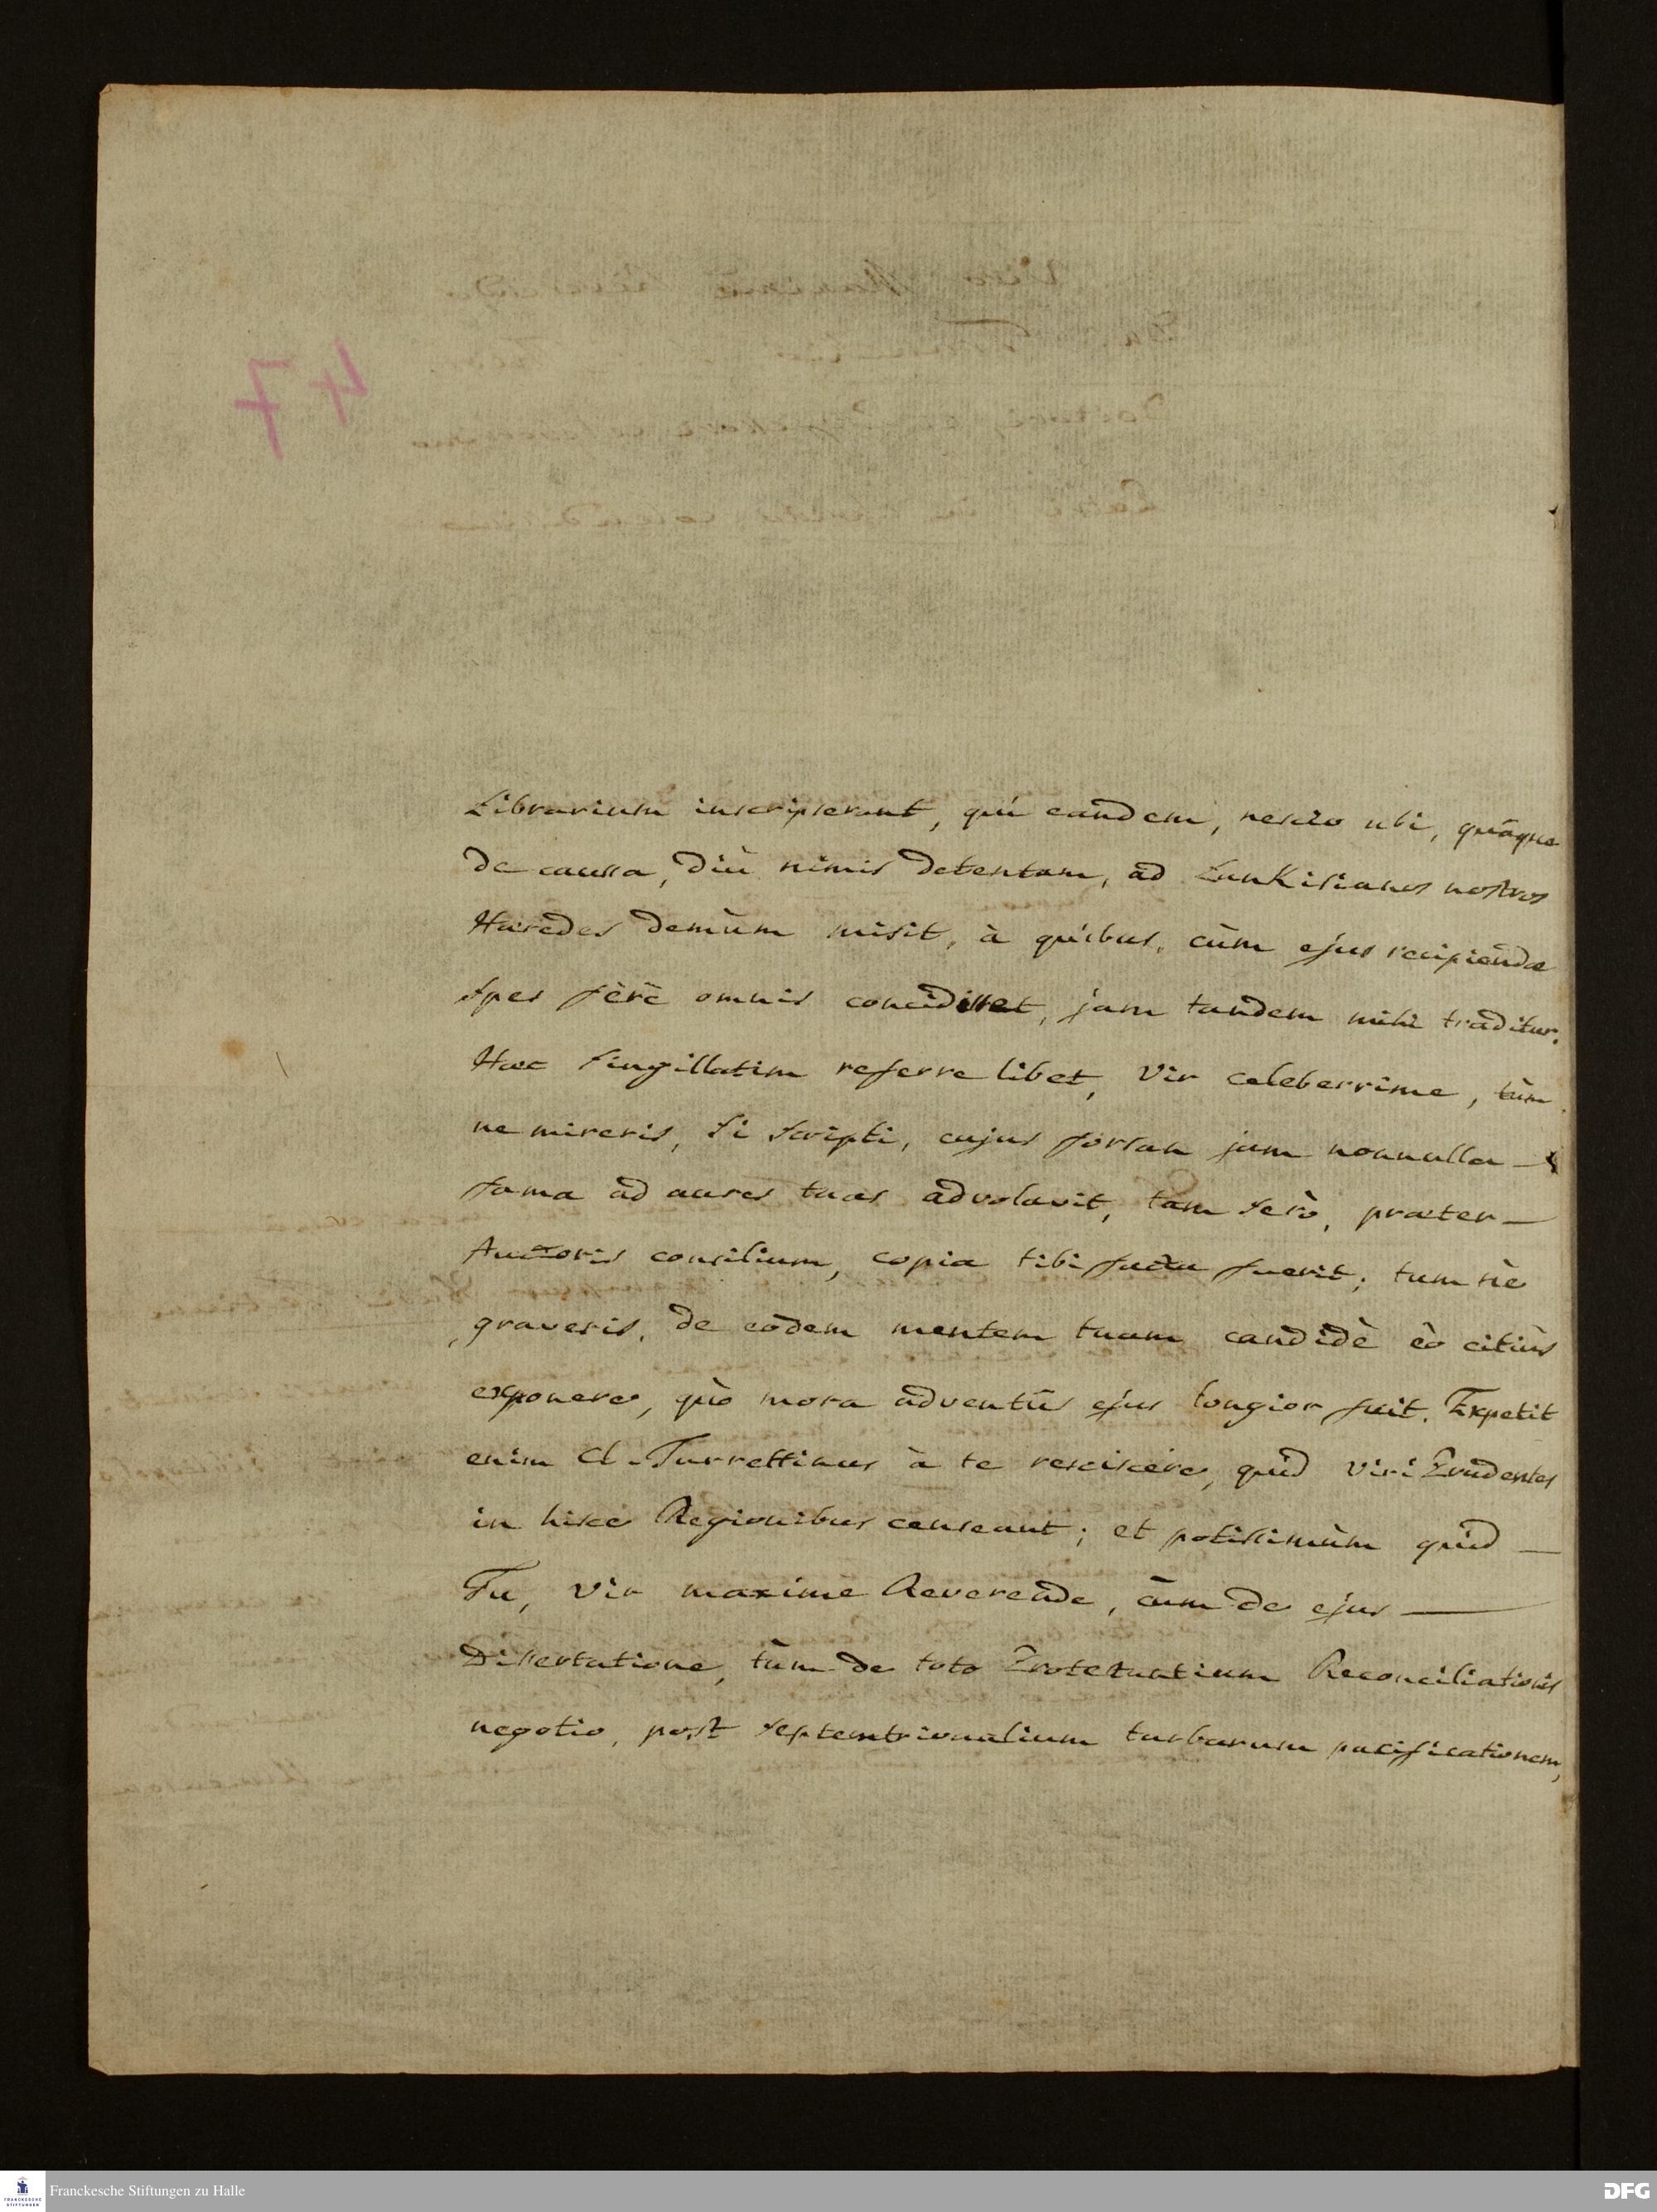 Librarium inscripserant, qui eandem, nescio ubi, quâque
de caussa, diù nimis detentam, ad LanKisianos nostros
Hæredes demùm misit, à quibus, cùm ejus recipiendæ
spes ferè omnis concidisset, jam tandem mihi traditur.
Hæc singillatim referre libet, Vir celeberrime, tùm
ne mireris, si scripti, cujus forsan jam nonnulla
fama ad aures tuas advolavit, tam serò, præter
Auctoris consilium, copia tibi facta fuerit; tum ne
graveris, de eodem mentem tuam candidè eò citiùs
exponere, quò mora adventûs ejus longior fuit. Expetit
enim Cl. Turrettinus à te resciscere, quid Viri Prudentes
in hisce Regionibus censeant; et potissimùm quid
Tu, Vir maxime Reverende, cùm de ejus
Dissertatione, tùm de toto Protestantium Reconciliationis
negotio, post septemtrionalium turbarum pacificationem,
47
Franckesche Stiftungen zu Halle
FRANCKESCHE
STIFTUNGEN
DFG